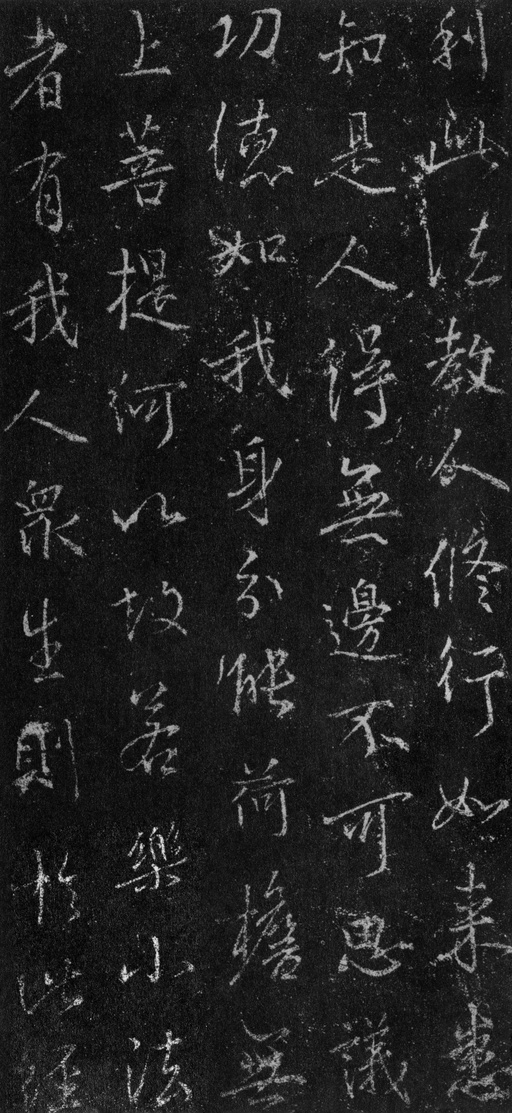 利此法教令修行如来悉
知是人得無邊不可思議
功德如我身分能荷擔無
上菩提何以故若樂小法
者有我人眾生則於此経